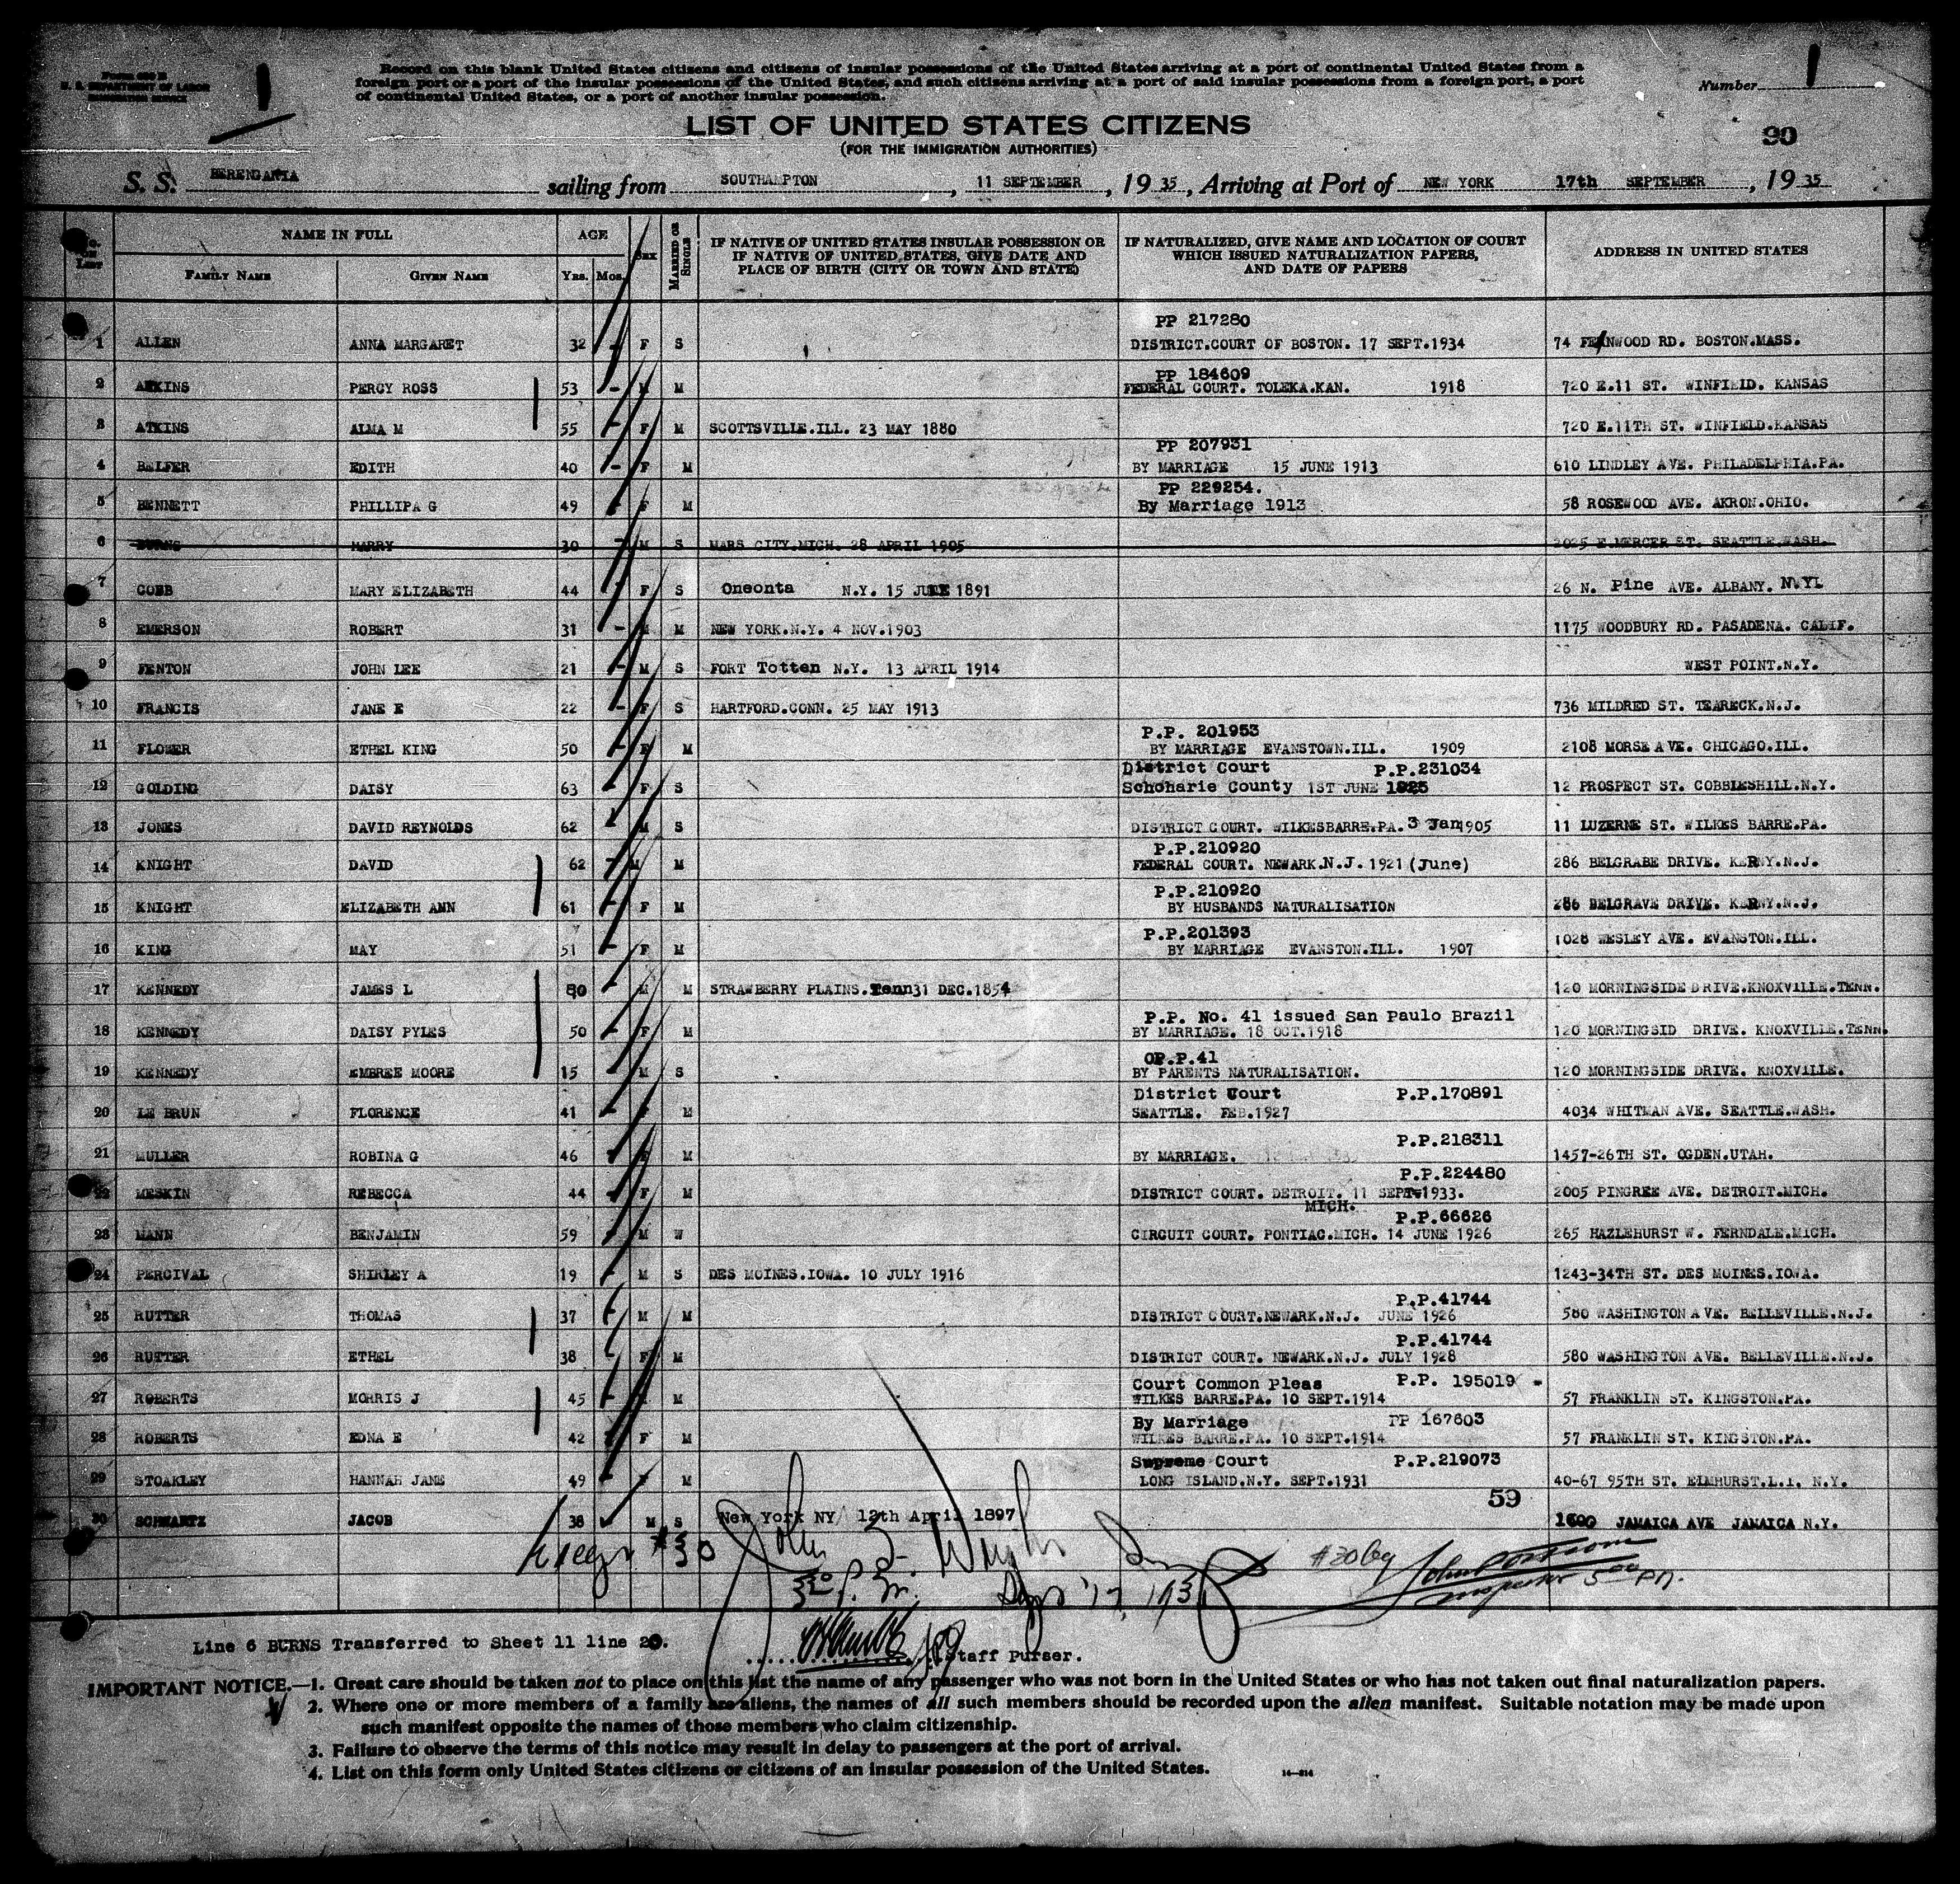 Form 630 B
U. S. DEPARTMENT OF LABOR
IMMIGRATION SERVICE
1
Record on this blank United States citizens and citizens of insular possessions of the United States arriving at a port of continental United States from a
foreign port or a port of the insular possessions of the United States, and such citizens arriving at a port of said insular possessions from a foreign port, a port
of continental United States, or a port of another insular possession.
Number 1
LIST OF UNITED STATES CITIZENS
(FOR THE IMMIGRATION AUTHORITIES)
90
S. S. BERENGARIA sailing from SOUTHAMPTON, 11 SEPTEMBER, 19 35, Arriving at Port of NEW YORK 17th SEPTEMBER, 19 35
No. on List NAME IN FULL AGE Sex Married or Single IF NATIVE OF UNITED STATES INSULAR POSSESSION OR IF NATIVE OF UNITED STATES, GIVE DATE AND PLACE OF BIRTH (CITY OR TOWN AND STATE) IF NATURALIZED, GIVE NAME AND LOCATION OF COURT WHICH ISSUED NATURALIZATION PAPERS, AND DATE OF PAPERS ADDRESS IN UNITED STATES
Family Name Given Name Yrs. Mos.
PP 217280
1 ALLEN ANNA MARGARET 32 - F S DISTRICT.COURT OF BOSTON. 17 SEPT.1934 74 FENWOOD RD. BOSTON.MASS.
PP 184609
2 ATKINS PERCY ROSS 53 - M M FEDERAL COURT. TOLEKA.KAN. 1918 720 E.11 ST. WINFIELD. KANSAS
3 ATKINS ALMA M 55 - F M SCOTTSVILLE.ILL. 23 MAY 1880 720 E.11TH ST. WINFIELD.KANSAS
PP 207931
4 BELFER EDITH 40 - F M BY MARRIAGE 15 JUNE 1913 610 LINDLEY AVE. PHILADELPHIA.PA.
PP 229254.
5 BENNETT PHILLIPA G 49 - F M By Marriage 1913 58 ROSEWOOD AVE. AKRON.OHIO.
6 BURNS HARRY 30 - M S MARS CITY.MICH. 28 APRIL 1905 2025 E.MERCER ST. SEATTLE.WASH.
7 COBB MARY ELIZABETH 44 - F S Oneonta N.Y. 15 JUNE 1891 26 N. Pine AVE. ALBANY. N.Y.
8 EMERSON ROBERT 31 - M M NEW YORK.N.Y. 4 NOV.1903 1175 WOODBURY RD. PASADENA. CALIF.
9 FENTON JOHN LEE 21 - M S FORT Totten N.Y. 13 APRIL 1914 WEST POINT.N.Y.
10 FRANCIS JANE E 22 - F S HARTFORD.CONN. 25 MAY 1913 736 MILDRED ST. TEARECK.N.J.
P.P. 201953
11 FLOWER ETHEL KING 50 - F M BY MARRIAGE EVANSTOWN.ILL. 1909 2108 MORSE AVE. CHICAGO.ILL.
District Court P.P.231034
12 GOLDING DAISY 63 - F S Schoharie County 1ST JUNE 1925 12 PROSPECT ST. COBBLESHILL.N.Y.
13 JONES DAVID REYNOLDS 62 M S DISTRICT COURT. WILKESBARRE.PA. 3 Jan 1905 11 LUZERNE ST. WILKES BARRE.PA.
P.P.210920
14 KNIGHT DAVID 62 - M M FEDERAL COURT. NEWARK.N.J. 1921 (June) 286 BELGRABE DRIVE. KERNY.N.J.
P.P.210920
15 KNIGHT ELIZABETH ANN 61 - F M BY HUSBANDS NATURALISATION 286 BELGRAVE DRIVE. KERNY.N.J.
P.P.201393
16 KING MAY 51 - F M BY MARRIAGE EVANSTON.ILL. 1907 1028 WESLEY AVE. EVANSTON.ILL.
17 KENNEDY JAMES L 80 - M M STRAWBERRY PLAINS.Tenn 31 DEC.1854 120 MORNINGSIDE DRIVE.KNOXVILLE.TENN.
P.P. No. 41 issued San Paulo Brazil
18 KENNEDY DAISY PYLES 50 - F M BY MARRIAGE. 18 OCT.1918 120 MORNINGSID DRIVE. KNOXVILLE.TENN.
P.P.41
19 KENNEDY EMBREE MOORE 15 - M S BY PARENTS NATURALISATION. 120 MORNINGSIDE DRIVE. KNOXVILLE.
District Court P.P.170891
20 LE BRUN FLORENCE 41 - F M SEATTLE. FEB.1927 4034 WHITMAN AVE. SEATTLE.WASH.
P.P.218311
21 MULLER ROBINA G 46 - F M BY MARRIAGE. 1457-26TH ST. OGDEN.UTAH.
P.P.224480
22 MESKIN REBECCA 44 - F M DISTRICT COURT. DETROIT. 11 SEPT.1933. 2005 PINGREE AVE. DETROIT.MICH.
MICH. P.P.66626
23 MANN BENJAMIN 59 - M W CIRCUIT COURT. PONTIAC.MICH. 14 JUNE 1926 265 HAZLEHURST W. FERNDALE.MICH.
24 PERCIVAL SHIRLEY A 19 - M S DES MOINES.IOWA. 10 JULY 1916 1243-34TH ST. DES MOINES.IOWA.
P.P.41744
25 RUTTER THOMAS 37 - M M DISTRICT COURT.NEWARK.N.J. JUNE 1926 580 WASHINGTON AVE. BELLEVILLE.N.J.
P.P.41744
26 RUTTER ETHEL 38 - F M DISTRICT COURT. NEWARK.N.J. JULY 1928 580 WASHINGTON AVE. BELLEVILLE.N.J.
Court Common Pleas P.P. 195019 -
27 ROBERTS MORRIS J 45 - M WILKES BARRE.PA. 10 SEPT.1914 57 FRANKLIN ST. KINGSTON.PA.
By Marriage PP 167603
28 ROBERTS EDNA E 42 F M WILKES BARRE.PA. 10 SEPT.1914 57 FRANKLIN ST. KINGSTON.PA.
Supreme Court P.P.219073
29 STOAKLEY HANNAH JANE 49 - F M LONG ISLAND.N.Y. SEPT.1931 40-67 95TH ST. ELMHURST.L.I. N.Y.
59
30 SCHWARTZ JACOB 38 M S New York NY 12th April 1897 JAMAICA AVE JAMAICA N.Y.
#30 John
Inspector 5 00 PM.
3 30 P. M. Sept 17, 1935
Line 6 BURNS Transferred to Sheet 11 line 20.
Staff Purser.
IMPORTANT NOTICE.—1. Great care should be taken not to place on this list the name of any passenger who was not born in the United States or who has not taken out final naturalization papers.
2. Where one or more members of a family are aliens, the names of all such members should be recorded upon the alien manifest. Suitable notation may be made upon
such manifest opposite the names of those members who claim citizenship.
3. Failure to observe the terms of this notice may result in delay to passengers at the port of arrival.
4. List on this form only United States citizens or citizens of an insular possession of the United States.
14—214